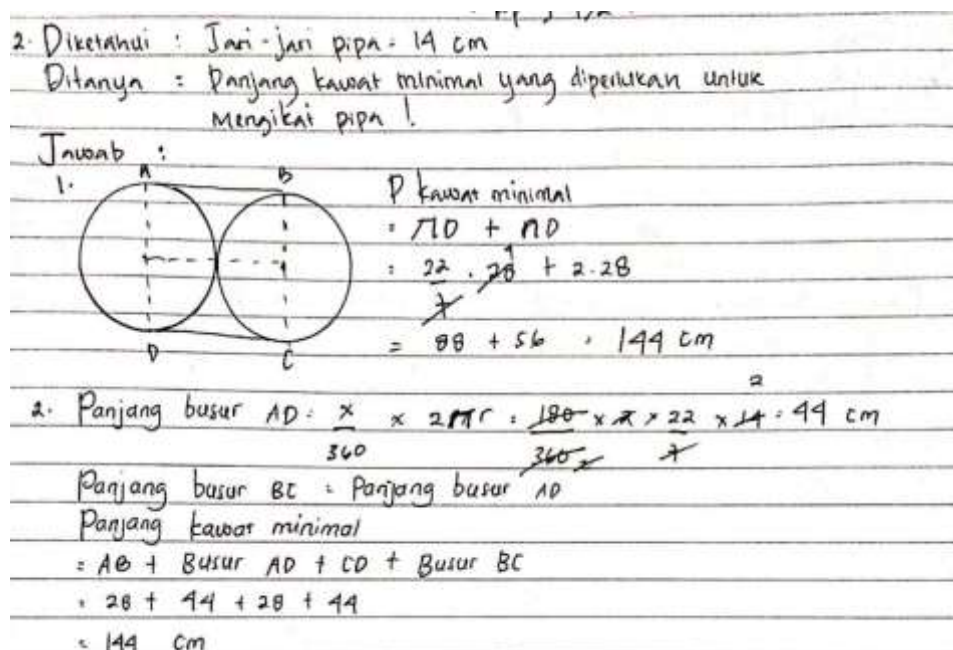 2. Diketahui : Jari-jari pipa = 14 cm
Ditanya : Panjang kawat minimal yang diperlukan untuk
Mengikat pipa !
Jawab :
1.
A
B
D
C
P kawat minimal
= πD + nD
= 22/7 . 28 4 + 2.28
= 88 + 56 = 144 cm
2. Panjang busur AD = x/360 × 2πr = 180/360 2 × 2 × 22/7 × 14 2 = 44 cm
Panjang busur BC = Panjang busur AD
Panjang kawat minimal
= AB + Busur AD + CD + Busur BC
= 28 + 44 + 28 + 44
= 144 cm